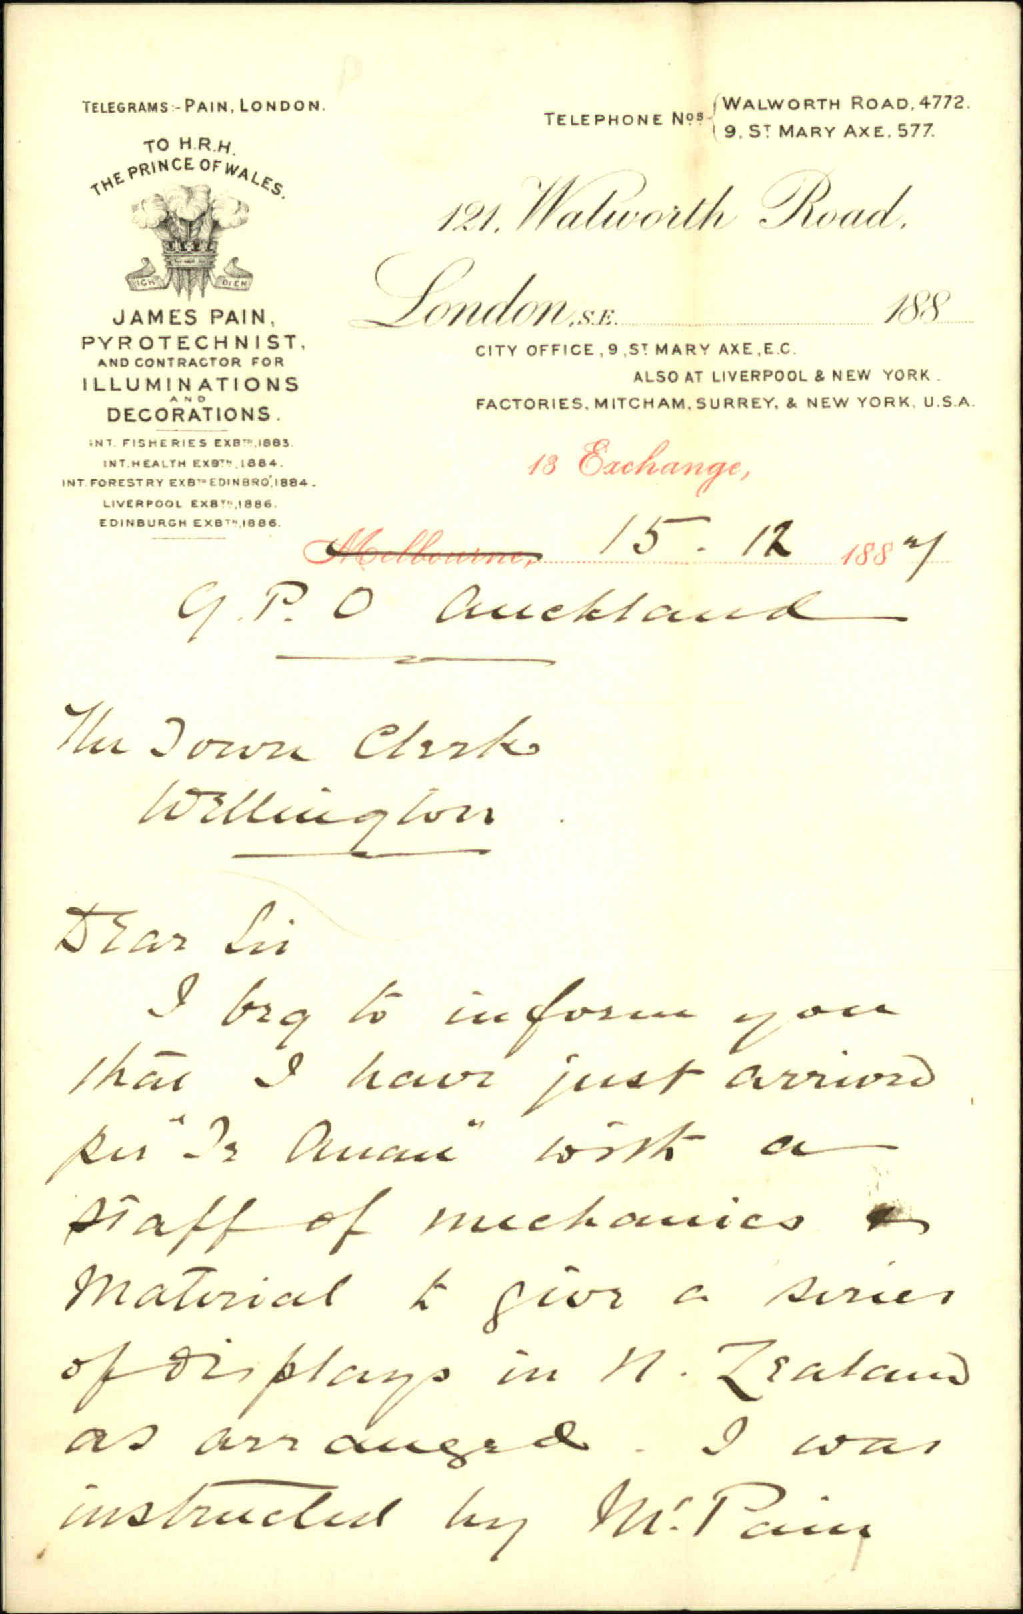 TELEGRAMS:-PAIN, LONDON.
TELEPHONE Nos
WALWORTH ROAD, 4772.
9, ST MARY AXE, 577.
TO H.R.H.
THE PRINCE OF WALES.
ICH DIEN
JAMES PAIN,
PYROTECHNIST,
AND CONTRACTOR FOR
ILLUMINATIONS
AND
DECORATIONS.
INT. FISHERIES EXBTN, 1883.
INT. HEALTH EXBTN, 1884.
INT. FORESTRY EXBTN EDINBRO', 1884.
LIVERPOOL EXBTN, 1886.
EDINBURGH EXBTN, 1886.
121, Walworth Road,
London, S.E. 188
CITY OFFICE, 9, ST MARY AXE, E.C.
ALSO AT LIVERPOOL & NEW YORK.
FACTORIES, MITCHAM, SURREY, & NEW YORK, U.S.A.
13 Exchange,
Melbourne, 15. 12 1887
G.P.O Auckland
The Town Clerk
Wellington.
Dear Sir
I beg to inform you
that I have just arrived
per "Te Anau" with a
staff of mechanics &
Material to give a series
of Displays in N. Zealand
as arranged. I was
instructed by Mr. Pain